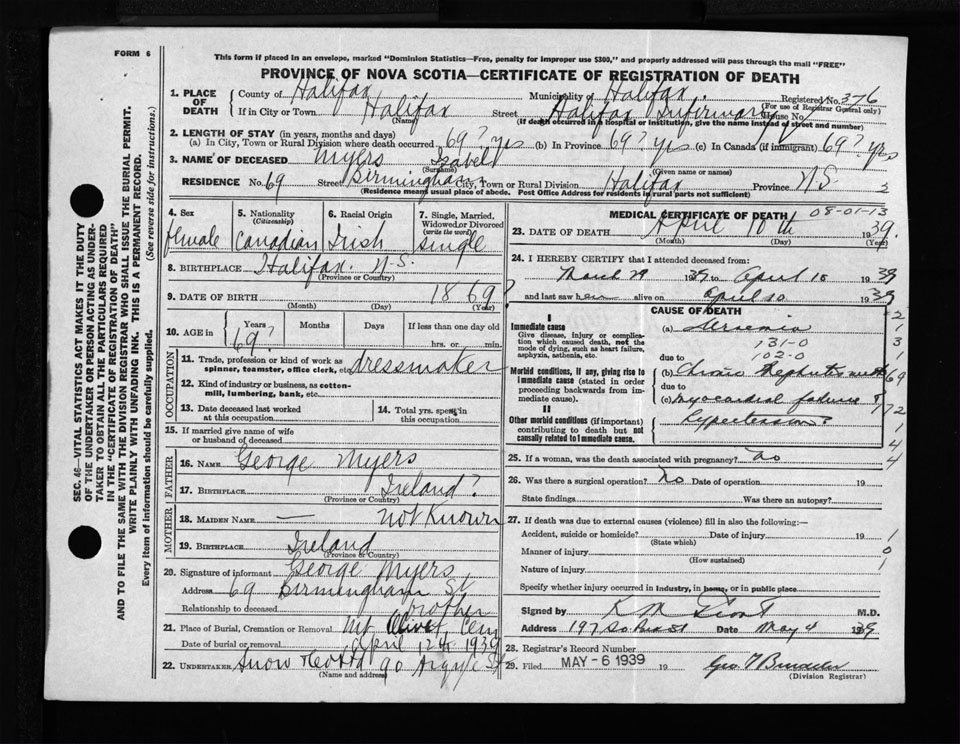 FORM 6
This form if placed in an envelope, marked "Dominion Statistics—Free, penalty for improper use $300," and properly addressed will pass through the mail "FREE"
PROVINCE OF NOVA SCOTIA—CERTIFICATE OF REGISTRATION OF DEATH
SEC. 46—VITAL STATISTICS ACT MAKES IT THE DUTY
OF THE UNDERTAKER OR PERSON ACTING AS UNDER-
TAKER TO OBTAIN ALL THE PARTICULARS REQUIRED
IN THE "CERTIFICATE OF REGISTRATION OF DEATH"
AND TO FILE THE SAME WITH THE DIVISION REGISTRAR WHO SHALL ISSUE THE BURIAL PERMIT.
WRITE PLAINLY WITH UNFADING INK. THIS IS A PERMANENT RECORD.
Every item of information should be carefully supplied. (See reverse side for instructions.)
1. PLACE OF DEATH County of Halifax Municipality of Halifax. Registered No. 376
(For use of Registrar General only)
If in City or Town Halifax Street Halifax Infirmary House No.
(Name) (If death occurred in a hospital or institution, give the name instead of street and number)
2. LENGTH OF STAY (in years, months and days)
(a) In City, Town or Rural Division where death occurred 69? yrs (b) In Province 69? yrs (c) In Canada (if immigrant) 69? yrs
3. NAME OF DECEASED Myers Isabel
(Surname) (Given name or names)
RESIDENCE No. 69 Street Birmingham City, Town or Rural Division Halifax Province N.S.
(Residence means usual place of abode. Post Office Address for residents in rural parts not sufficient)
4. Sex female
5. Nationality (Citizenship) Canadian
6. Racial Origin Irish
7. Single, Married, Widowed or Divorced (write the word) single
8. BIRTHPLACE Halifax. N.S.
(Province or Country)
9. DATE OF BIRTH 1869?
(Month) (Day) (Year)
10. AGE in Years Months Days If less than one day old
69? hrs. or min.
OCCUPATION
11. Trade, profession or kind of work as spinner, teamster, office clerk, etc. dressmaker
12. Kind of industry or business, as cotton-mill, lumbering, bank, etc.
13. Date deceased last worked at this occupation
14. Total yrs. spent in this occupation
15. If married give name of wife or husband of deceased
FATHER
16. NAME George Myers
17. BIRTHPLACE Ireland?
(Province or Country)
MOTHER
18. MAIDEN NAME — not Known
19. BIRTHPLACE Ireland
(Province or Country)
20. Signature of informant George Myers
Address 69 Birmingham St
Relationship to deceased brother
21. Place of Burial, Cremation or Removal Mt Olivet Cem
Date of burial or removal April 12th 1939
22. UNDERTAKER Snow & Co Ltd 90 Argyle St
(Name and address)
MEDICAL CERTIFICATE OF DEATH 08-01-13
23. DATE OF DEATH April 10th 1939
(Month) (Day) (Year)
24. I HEREBY CERTIFY that I attended deceased from:
March 29 1939 to April 10 1939
and last saw her alive on April 10 1939
CAUSE OF DEATH
I
Immediate cause
Give disease, injury or complication which caused death, not the mode of dying, such as heart failure, asphyxia, asthenia, etc.
(a) Uraemia
131-0
due to 102-0
Morbid conditions, if any, giving rise to immediate cause (stated in order proceeding backwards from immediate cause).
(b) Chronic Nephritis with
due to
(c) myocardial failure &
II
Other morbid conditions (if important) contributing to death but not causally related to Immediate cause.
Hypertension.
25. If a woman, was the death associated with pregnancy? No
26. Was there a surgical operation? No Date of operation 19
State findings Was there an autopsy?
27. If death was due to external causes (violence) fill in also the following:—
Accident, suicide or homicide? Date of injury 19
(State which)
Manner of injury
(How sustained)
Nature of injury
Specify whether injury occurred in industry, in home, or in public place
Signed by K M Grant M.D.
Address 197 So Park St Date May 4 1939
28. Registrar's Record Number
29. Filed MAY - 6 1939 19
(Division Registrar)